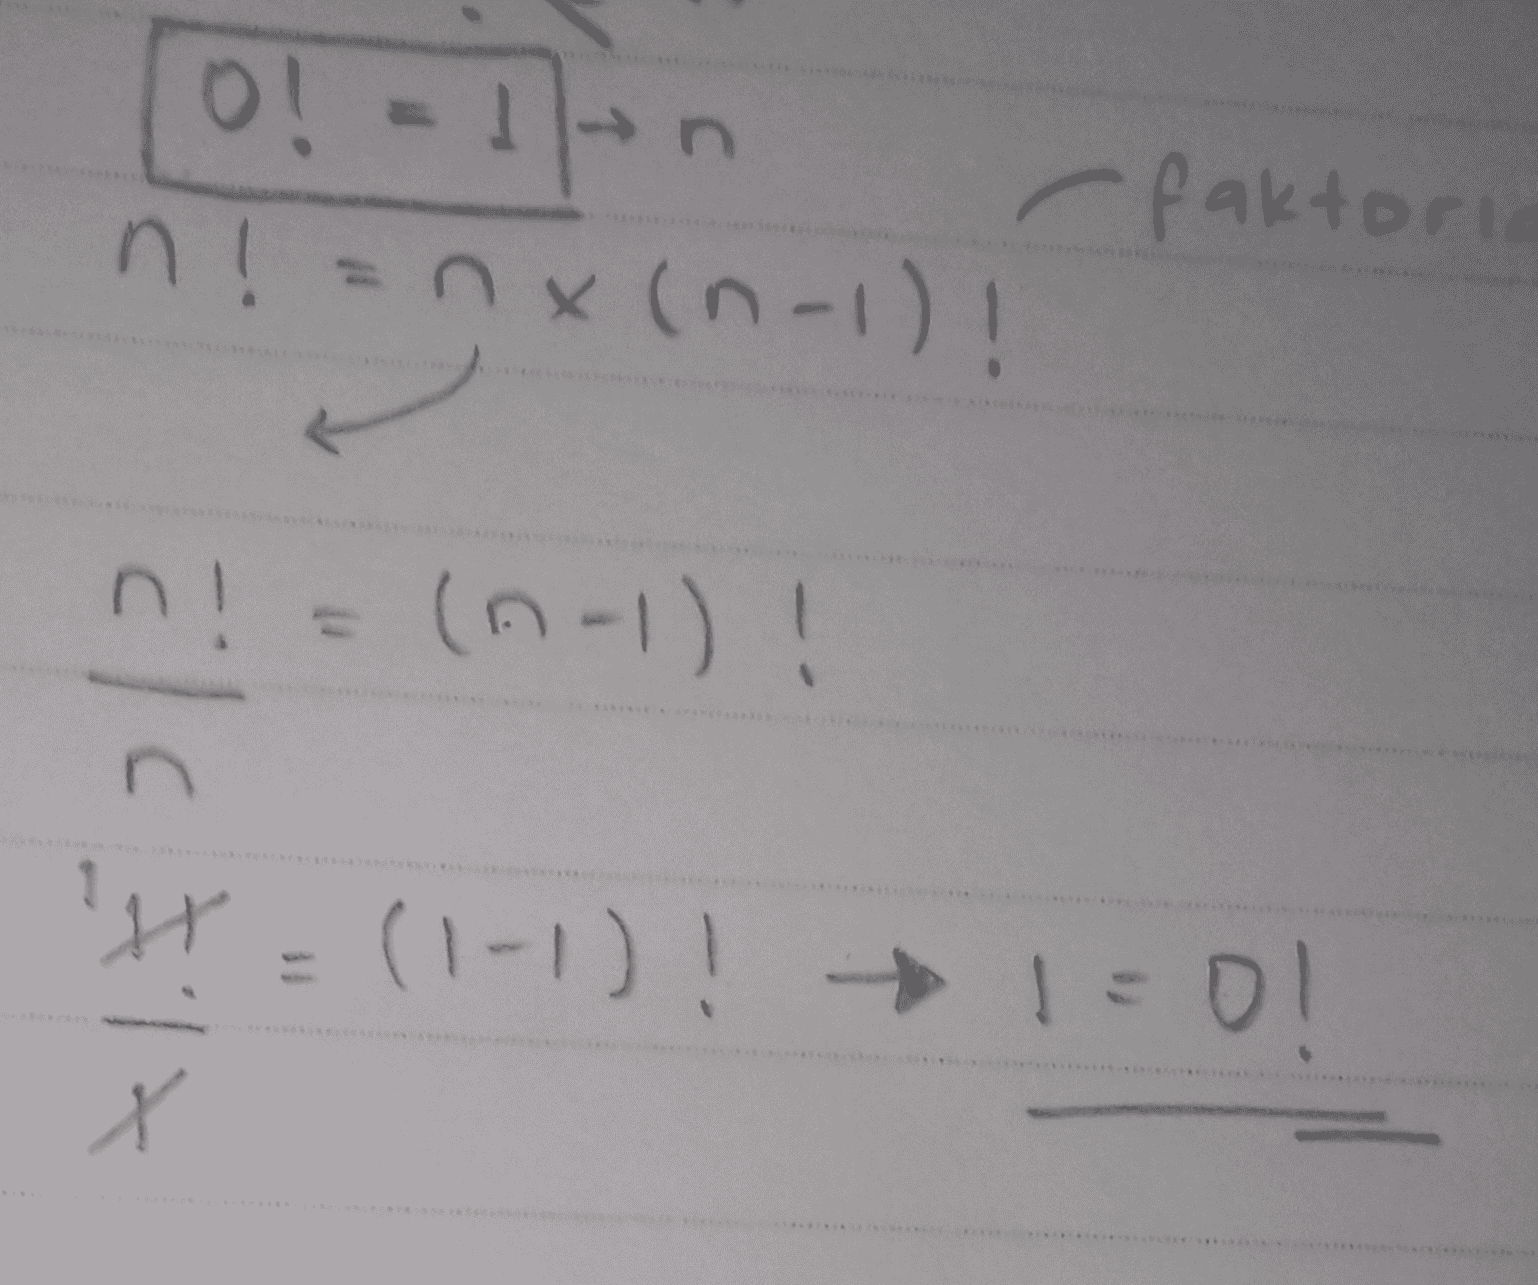 0! = 1 → n
faktoria
n! = n x (n-1)!
n! = (n-1)!
n
1 1! = (1-1)! → 1 = 0!
1